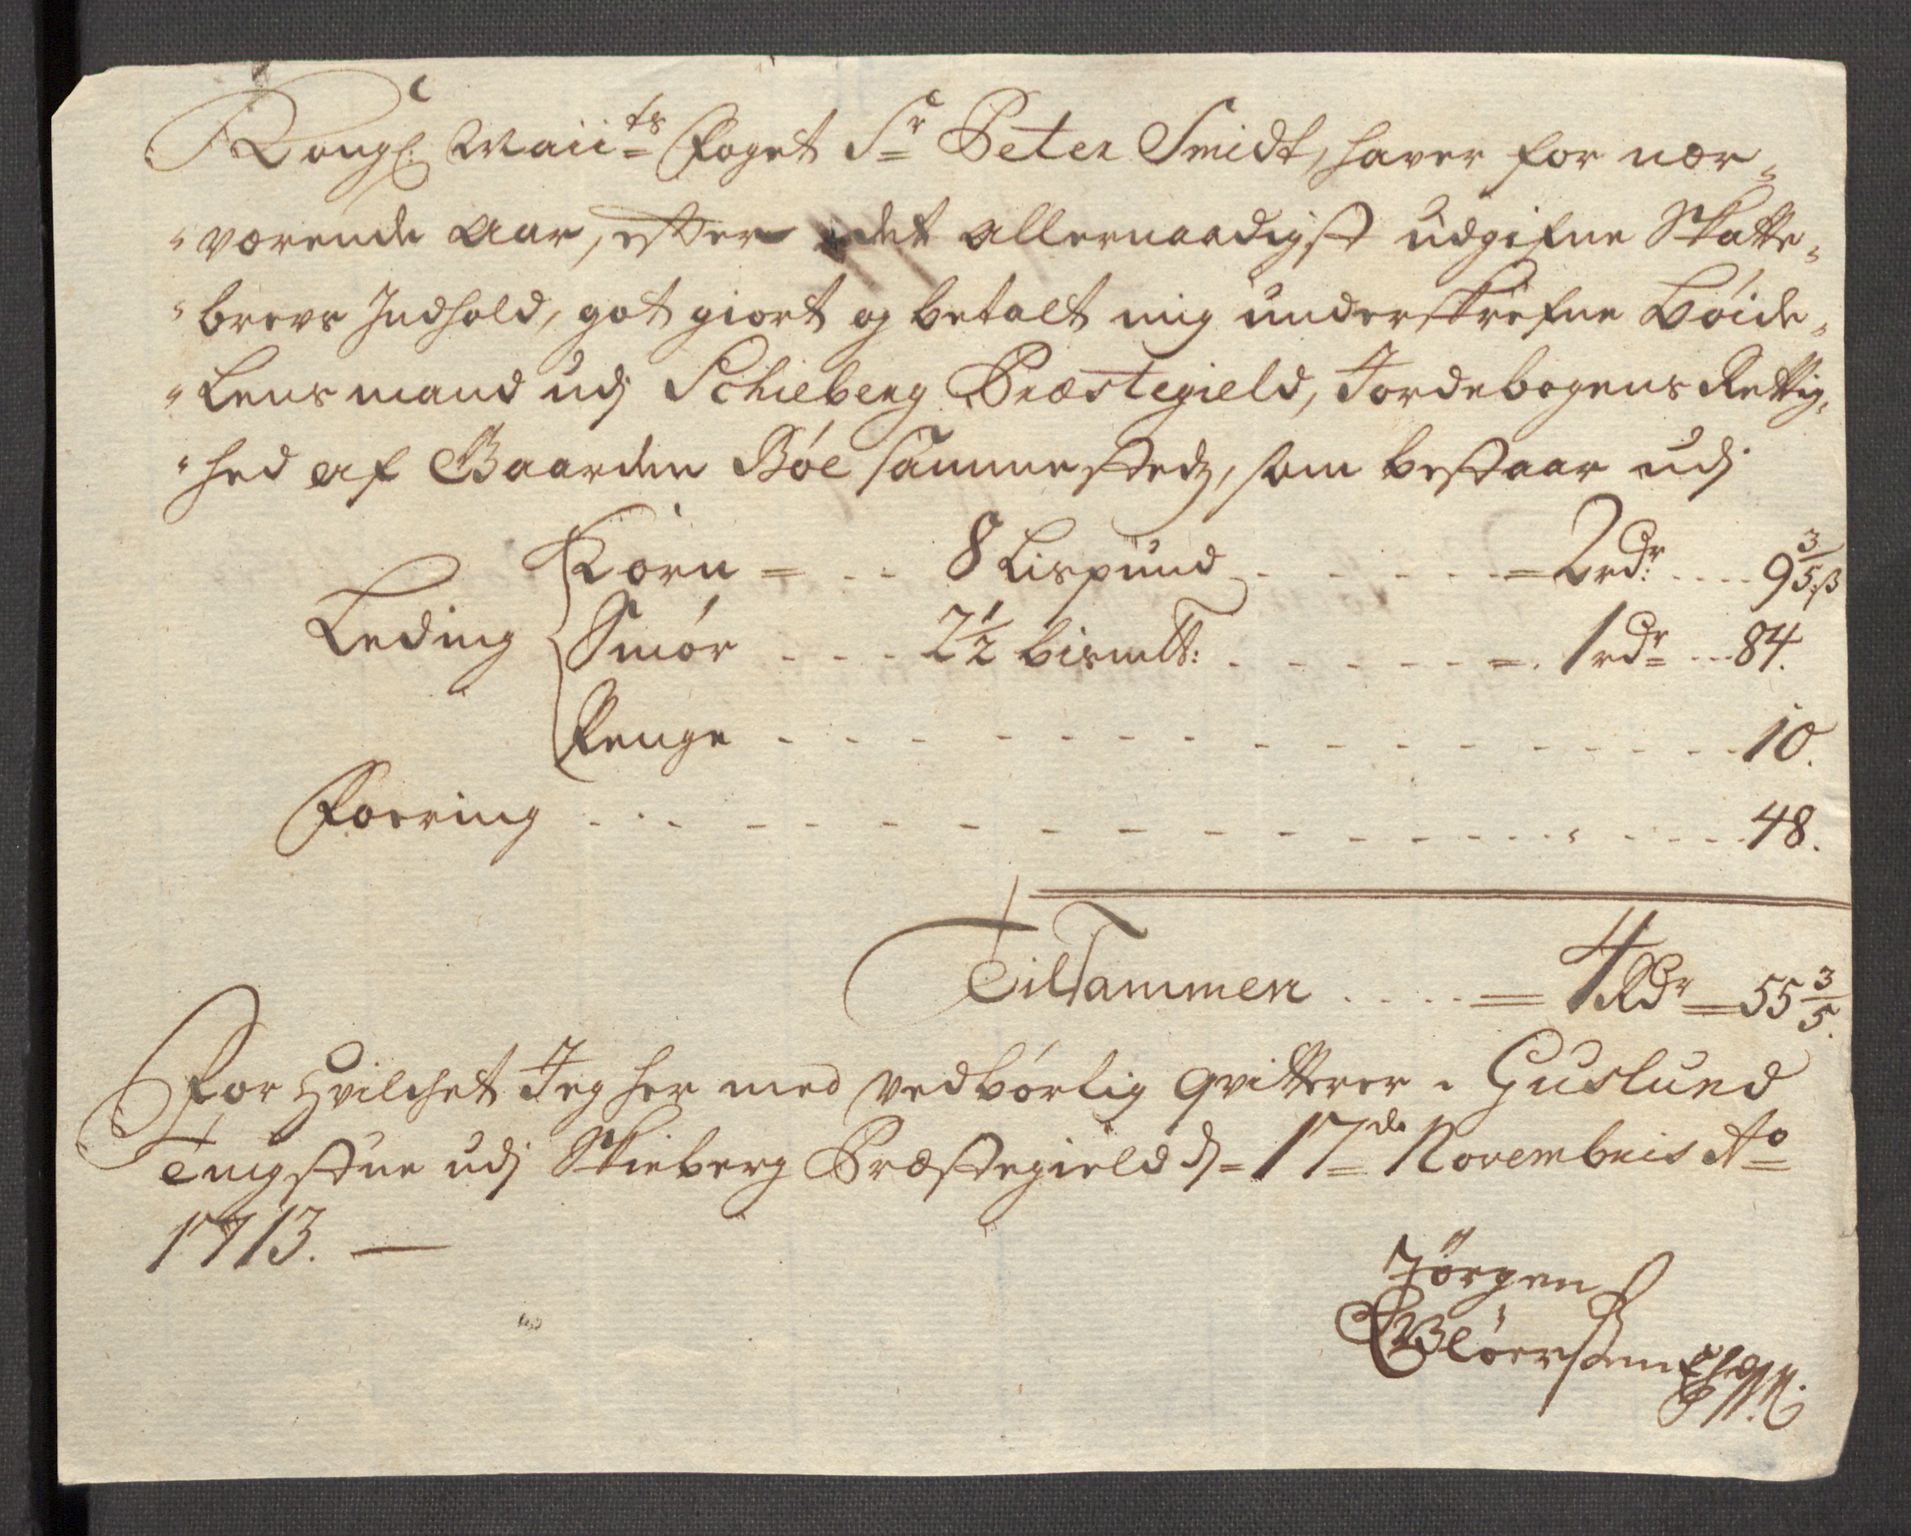 Kongl: Maiits Foget Sr Peter Smidt, haver for nær-
værende Aar, efter det allernaadigst udgifne Skatte-
brevs Indhold, got giort og betalt mig underskrefne Bøide-
Lensmand udj Schieberg Præstegield, Jordebogens Rettig-
hed af Gaarden Bøe sammestedz, som bestaar udj
Korn = . . 8 Lispund . . . . = 2 rdr: .... 9 3/5 ß
Leding Smør . . . 2 1/2 bismll: . . . . = . 1 rdr ... 84.
Penge . . . . . . . . . . . 10.
Foering . . . . . . . . . . . 48.
Tilsammen . . . . = 4 Rdr = 55 3/5.
For Hvilchet Jeg her med vedbørlig qvitterer. Guslund
Tingstue udj Skieberg Præstegield d= 17de Novembris Ao
1713. —
Jörgen